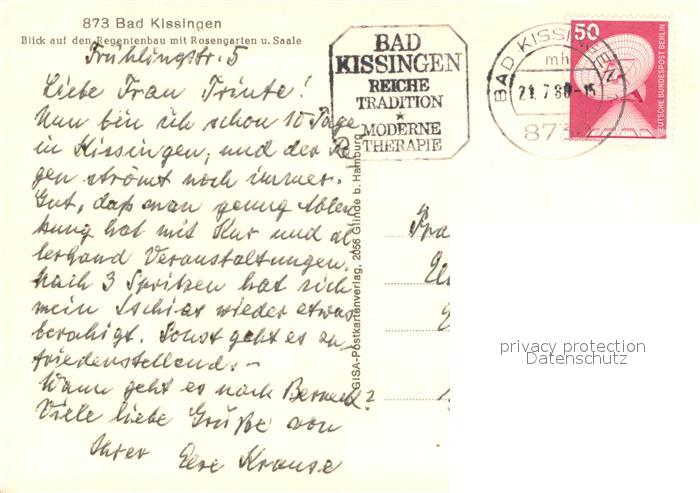 873 Bad Kissingen
Blick auf den Regentenbau mit Rosengarten u. Saale
Frühlingstr. 5
Liebe Frau Trinte!
Nun bin ich schon 10 Tage
in Kissingen, und der Re-
gen strömt noch immer.
Gut, daß man genug Ablen-
kung hat mit Kur und al-
lerhand Veranstaltungen.
Nach 3 Spritzen hat sich
mein Ischias wieder etwas
beruhigt. Sonst geht es zu-
friedenstellend. –
Wann geht es nach Berneck?
Viele liebe Grüße von
Ihrer Else Krause
GISA-Postkartenverlag, 2056 Glinde b. Hamburg
BAD
KISSINGEN
REICHE
TRADITION
★
MODERNE
THERAPIE
BAD KISSINGEN
mh
21.7.80-15
873
50
DEUTSCHE BUNDESPOST BERLIN
Frau
privacy protection
Datenschutz